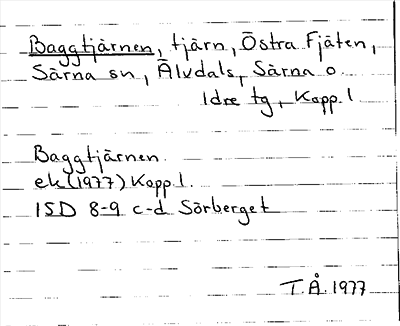 Baggtjärnen, tjärn, Östra Fjäten,
Särna sn, Älvdals, Särna o.
Idre tg, Kopp. l
Baggtjärnen
ek (1977) Kopp. l.
15D 8-9 c-d Sörberget
T.Å. 1977